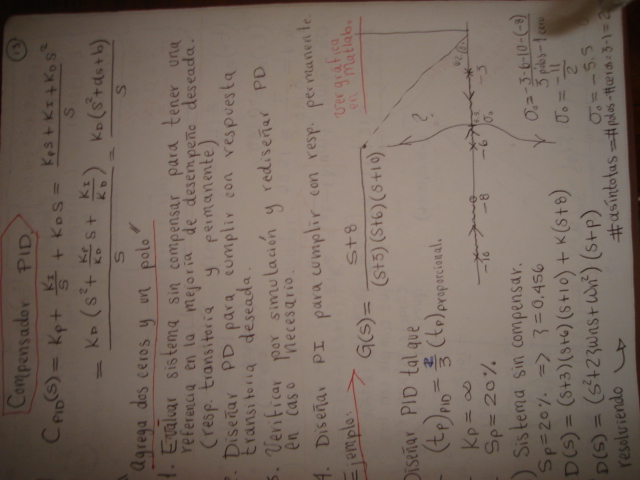 (13)
Compensador PID
C_PID(s) = Kp + KI/s + KD s = (Kp s + KI + KD s²)/s
= KD (s² + Kp/KD s + KI/KD)/s = KD (s² + as + b)/s
Agrega dos ceros y un polo
1. Evaluar sistema sin compensar para tener una
referencia en la mejoría de desempeño deseada.
(resp. transitoria y permanente)
2. Diseñar PD para cumplir con respuesta
transitoria deseada.
3. Verificar por simulación y rediseñar PD
en caso necesario.
4. Diseñar PI para cumplir con resp. permanente.
Ejemplo: G(s) = (s+8)/((s+3)(s+6)(s+10))
Ver gráfica
en Matlab.
Diseñar PID tal que
(tp)PID = 2/3 (tp)proporcional.
Kp = ∞
Sp = 20%
-10 -8 -6 σ₀ -3
?
) Sistema sin compensar.
Sp = 20% => ζ = 0.456
D(s) = (s+3)(s+6)(s+10) + K(s+8)
D(s) = (s² + 2ζωns + ωn²)(s+p)
resolviendo
σ₀ = (-3-6-10-(-8))/(3 polos - 1 cero)
σ₀ = -11/2
σ₀ = -5.5
#asíntotas = #polos - #ceros = 3-1 = 2